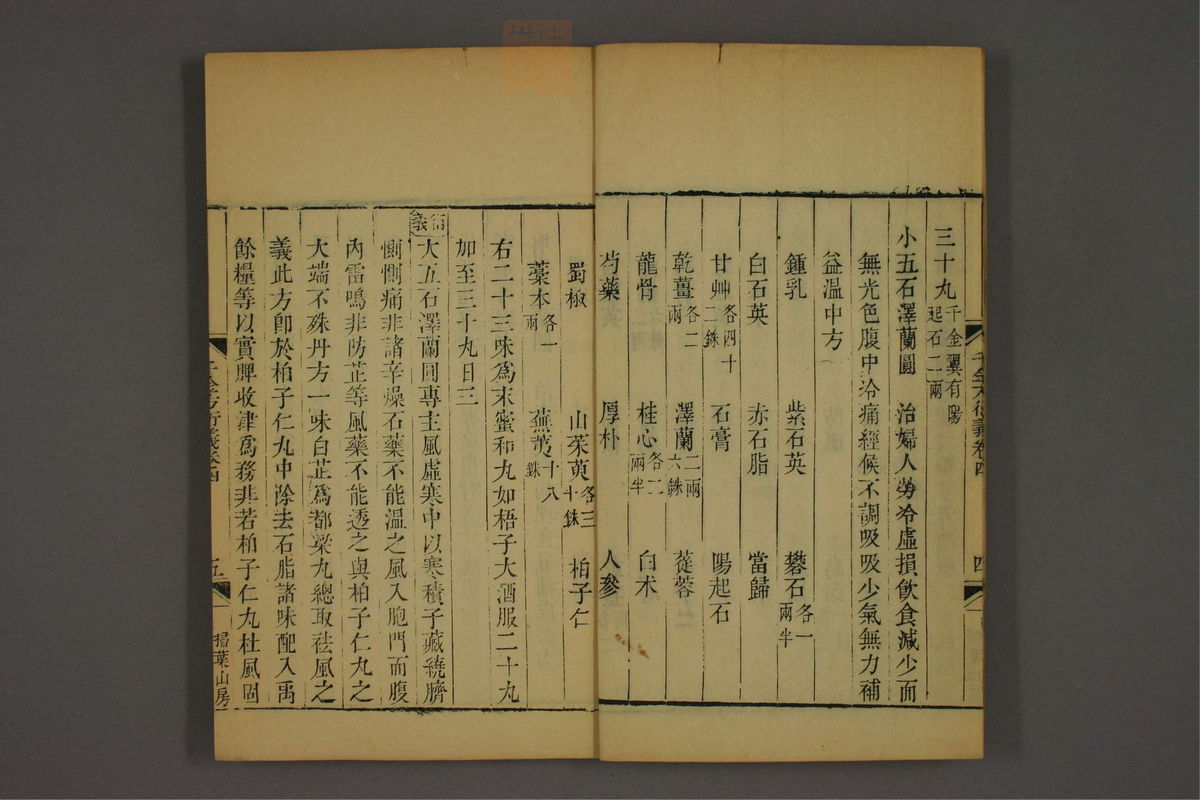 三十丸千金翼有陽起石二兩
小五石澤蘭圓　治婦人勞冷虛損飲食減少面
無光色腹中冷痛經候不調吸吸少氣無力補
益溫中方
鍾乳　紫石英　礬石各一兩半
白石英　赤石脂　當歸
甘艸各四十二銖　石膏　陽起石
乾薑各二兩　澤蘭二兩六銖　蓯蓉
龍骨　桂心各二兩半　白术
芍藥　厚朴　人參
千金方衍義卷四　四
蜀椒　山茱萸各三十銖　柏子仁
藁本各一兩　蕪荑十八銖
右二十三味爲末蜜和丸如梧子大酒服二十丸
加至三十丸日三
衍義大五石澤蘭圓專主風虛寒中以寒積子藏繞臍
惻惻痛非諸辛燥石藥不能溫之風入胞門而腹
內雷鳴非防芷等風藥不能透之與柏子仁丸之
大端不殊丹方一味白芷爲都梁丸總取祛風之
義此方卽於柏子仁丸中除去石脂諸味配入禹
餘糧等以實脾收津爲務非若柏子仁丸杜風固
千金方衍義卷四　五　掃葉山房